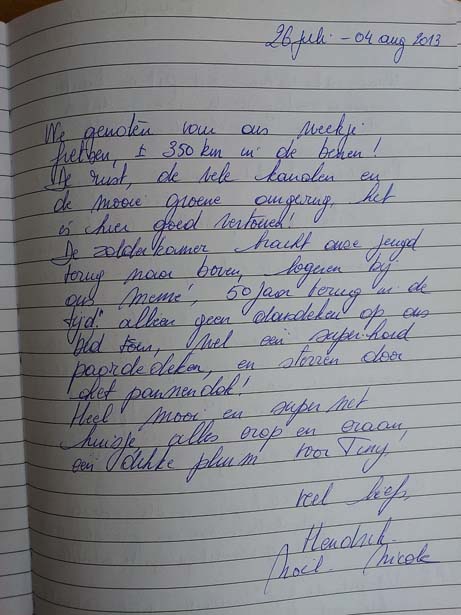 26 juli - 04 aug 2013
We genoten van ons weekje
fietsen, ± 350 km in de benen!
De rust, de vele kanalen en
de mooie groene omgeving, het
is hier goed vertoeven!
De zolderkamer bracht onze jeugd
terug naar boven, logeren bij
ons memé, 50 jaar terug in de
tijd! alleen geen donsdeken op ons
bed toen, wel een superhard
paardedeken, en sterren door
het pannendak!
Heel mooi en super net
huisje, alles erop en eraan,
een dikke pluim voor Tiny,
veel liefs,
Hendrik
Nicole